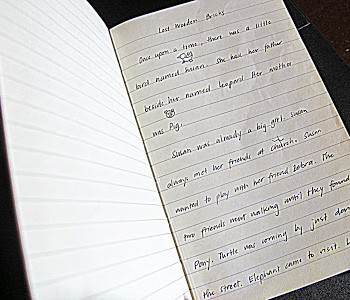 Lost Wooden Bricks
Once upon a time, there was a little
bird named Susan. She had her father
beside her named Leopard. Her mother
was Pig.
Susan was already a big girl. Susan
always met her friends at church. Susan
wanted to play with her friend Zebra. The
two friends went walking until they found
Pony. Turtle was coming by just down
the street. Elephant came to visit.